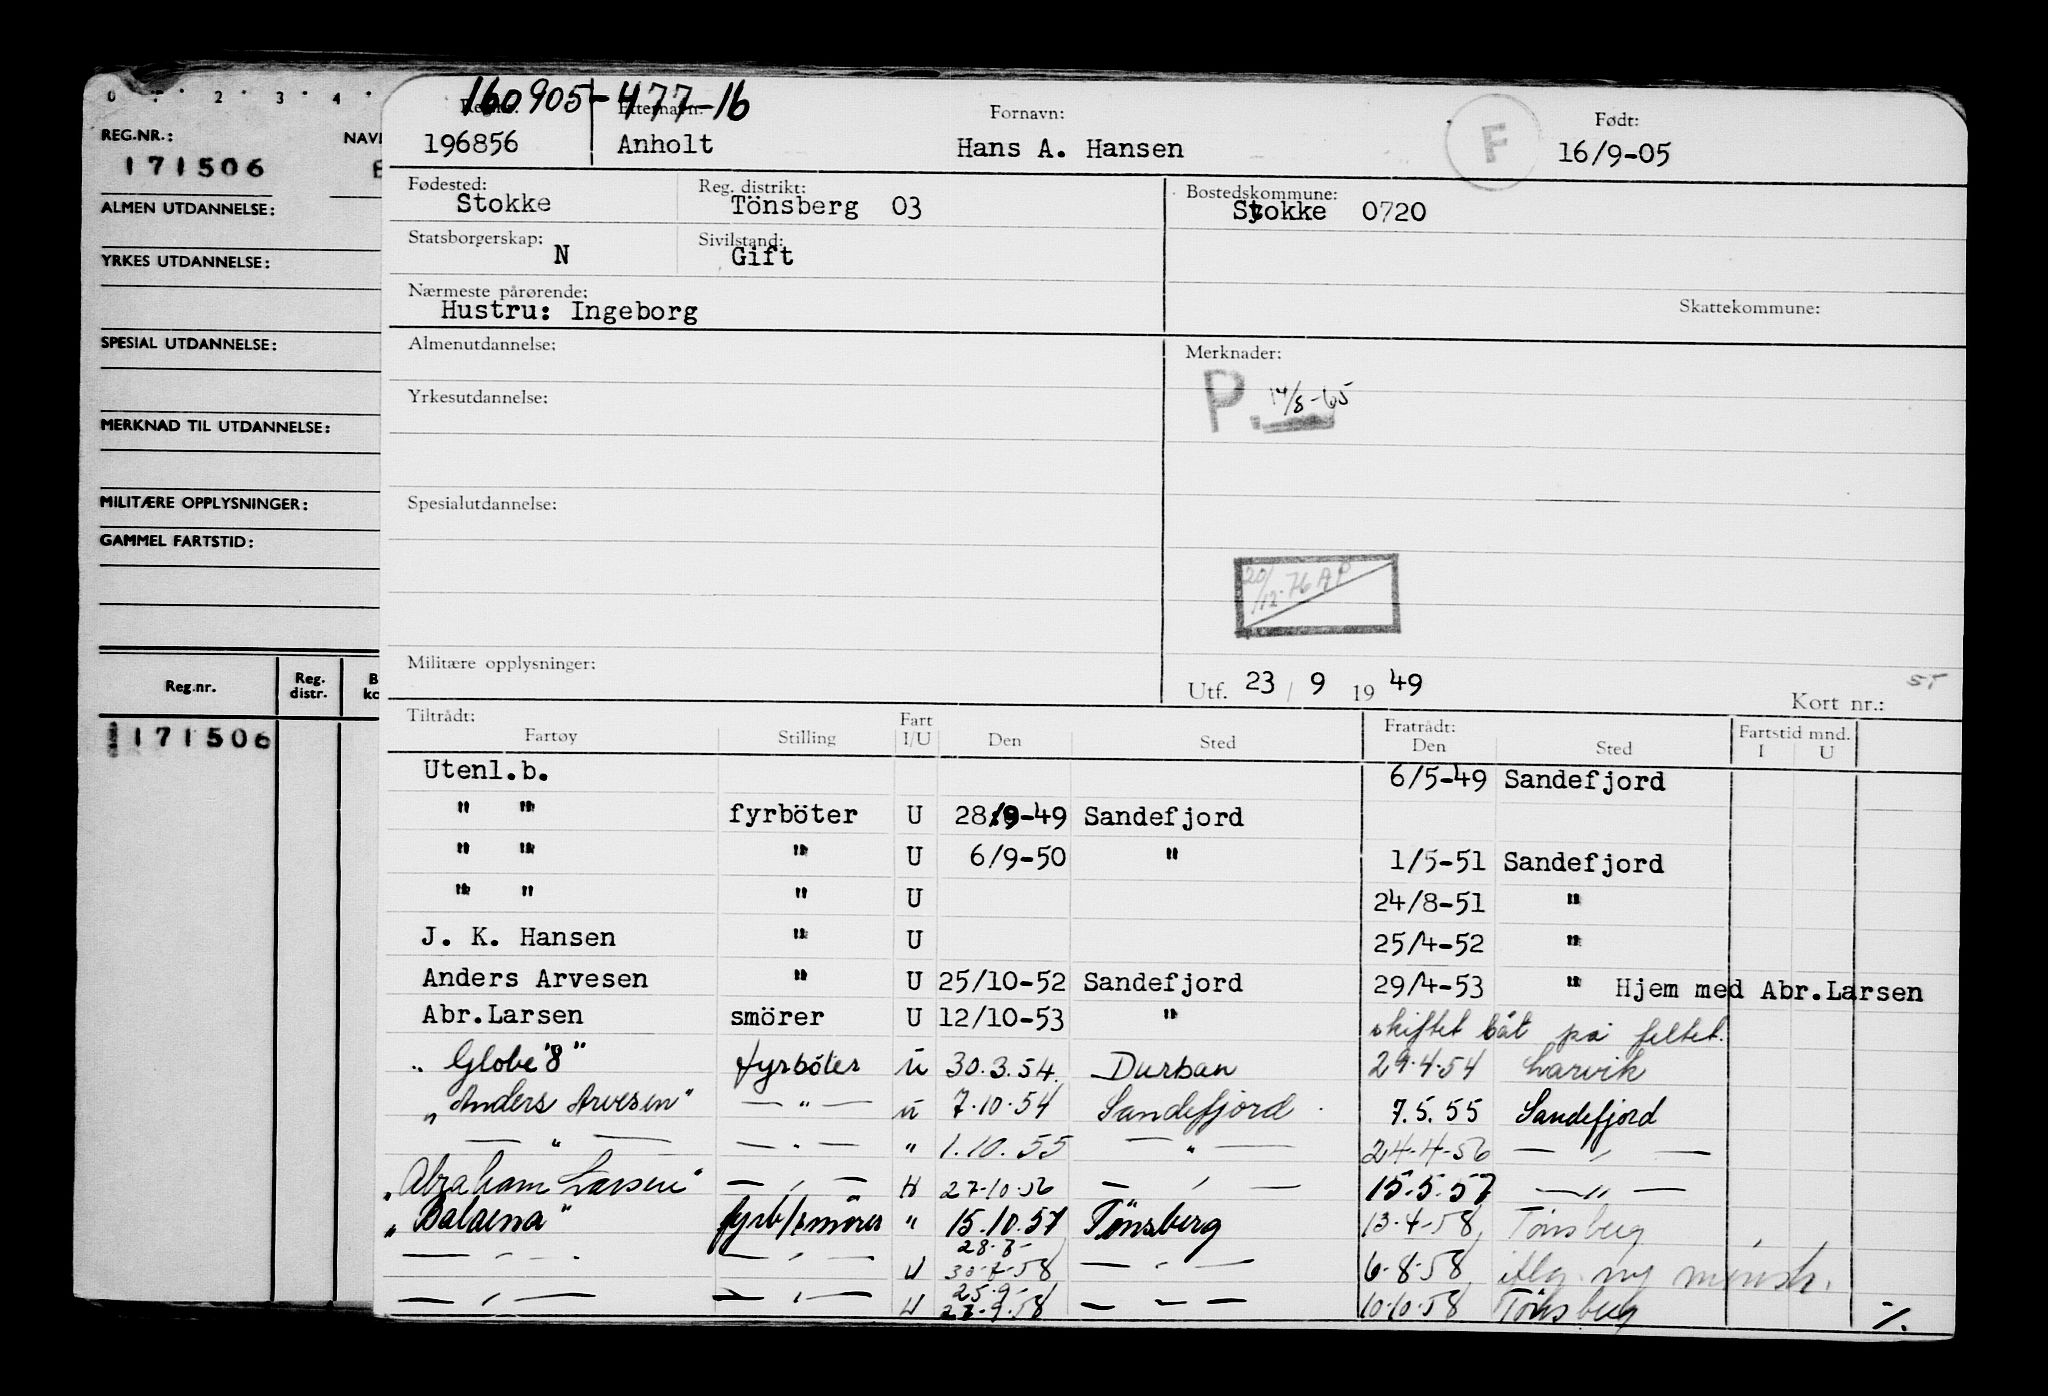 0 . . 2 . 3 . 4 .
REG.NR.: NAV
171506
ALMEN UTDANNELSE:
YRKES UTDANNELSE:
SPESIAL UTDANNELSE:
MERKNAD TIL UTDANNELSE:
MILITÆRE OPPLYSNINGER:
GAMMEL FARTSTID:
Reg.nr. Reg. distr. B ko
171506
160905-477-16
Etternavn: Fornavn: Født:
196856 Anholt Hans A. Hansen F 16/9-05
Fødested: Reg. distrikt: Bostedskommune:
Stokke Tönsberg 03 Stokke 0720
Statsborgerskap: Sivilstand:
N Gift
Nærmeste pårørende: Skattekommune:
Hustru: Ingeborg
Almenutdannelse: Merknader:
P. 14/8-65
Yrkesutdannelse:
Spesialutdannelse:
20/12-76 AP
Militære opplysninger:
Utf. 23 / 9 19 49 Kort nr.: ST
Tiltrådt: Fart Fratrådt: Fartstid mnd.
Fartøy Stilling I/U Den Sted Den Sted I U
Utenl.b. 6/5-49 Sandefjord
" " fyrböter U 28/9-49 Sandefjord
" " " U 6/9-50 " 1/5-51 Sandefjord
" " " U 24/8-51 "
J. K. Hansen " U 25/4-52 "
Anders Arvesen " U 25/10-52 Sandefjord 29/4-53 " Hjem med Abr.Larsen
Abr.Larsen smörer U 12/10-53 " skiftet båt på feltet.
"Globe 8" fyrböter U 30.3.54. Durban 29.4.54 Larvik
"Anders Arvesen" — " — U 7.10.54 Sandefjord 7.5.55 Sandefjord
— " — — " — " 1.10.55 — " — 24-4-56 — " —
"Abraham Larsen" — " — U 27-10-56 — " — 15.5.57 — " —
"Balaena" fyrb/smörer " 15.10.57 Tönsberg 13-4-58 Tönsberg
28.7-
— " — — " — U 30-7-58 — " — 6-8-58 itlg. ny mönstr.
25.9-
— " — — " — U 27-9-58 — " — 10-10-58 Tönsberg ./.